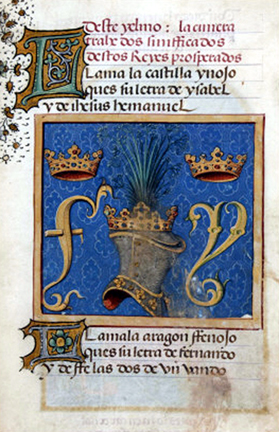 deste yelmo: la cimera
trahe dos sinifficados
destos Reyes prosperados
Llama la castilla ynojo
ques su letra de ysabel
y de ihesus hemanuel
F Y
Llamala aragon ffenojo
ques su letra de fernando
y de las dos de vn vando